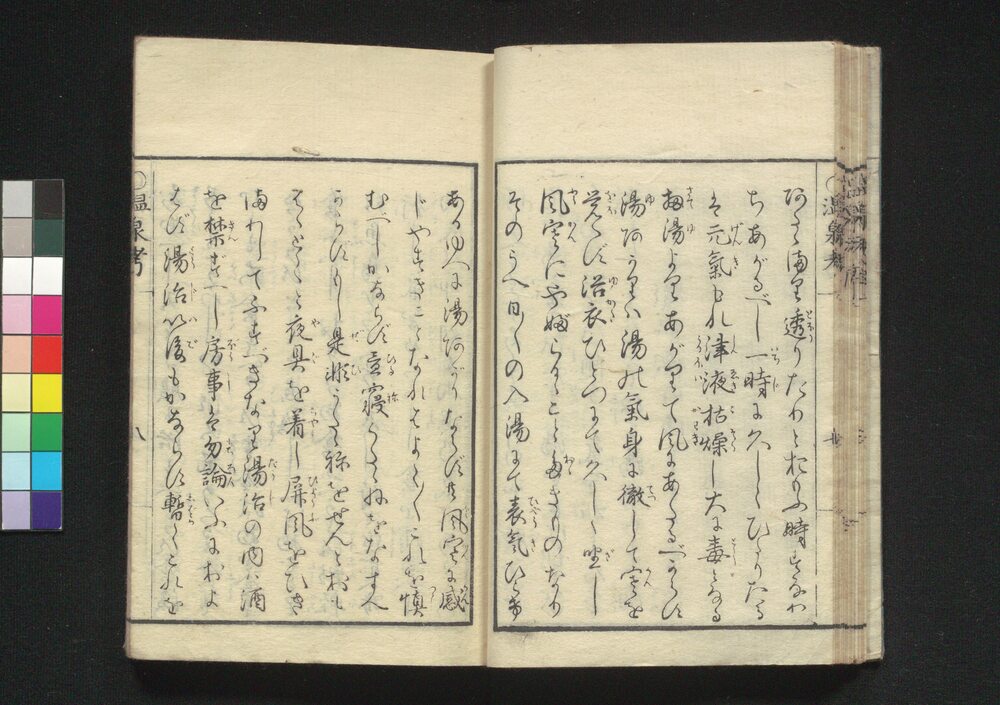 あたゝまり透りたりとおもふ時すなわ
ちあがるべし一時に久しくひたりたる
は元氣もれ津液枯燥し大に毒となる
扨湯よりあがりて風にあたるべからす
湯あかりハ湯の氣身に徹して寒を
覚へず浴衣ひとつにて久しく坐し
風寒にやぶらるゝこと多きものなり
そのうへ日〻の入湯にて表氣ひらき
あるゆへに湯あがりならば必風寒に感
じやすきことなれはよく〳〵これを慎
むべしかならず昼寝くたくねをなす
べからずもし是非うたゝ祢をせんとおも
はゝとくと夜具を着し屏風をひき
まわしてふすべきなり湯治の内ハ酒
を禁ずべし房事は勿論いふにおよ
はず湯治以後もかならす暫くこれを
温泉考
八
〇温泉考